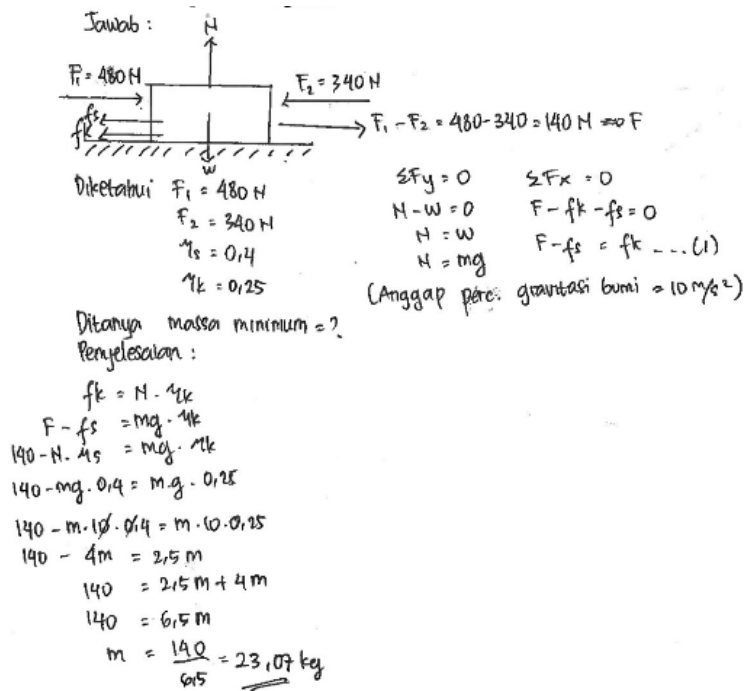 Jawab :
N
F₁ = 480 N
F₂ = 340 N
fs
fk
F₁ - F₂ = 480 - 340 = 140 N ⇒ F
w
Diketahui F₁ = 480 N
F₂ = 340 N
μs = 0,4
μk = 0,25
Ditanya massa minimum = ?
ΣFy = 0
N - W = 0
N = W
N = mg
ΣFx = 0
F - fk - fs = 0
F - fs = fk ... (1)
(Anggap perc. gravitasi bumi = 10 m/s²)
Penyelesaian :
fk = N . μk
F - fs = mg . μk
140 - N . μs = mg . μk
140 - mg . 0,4 = m.g . 0,25
140 - m . 10 . 0,4 = m . 10 . 0,25
140 - 4m = 2,5 m
140 = 2,5 m + 4 m
140 = 6,5 m
m = 140/6,5 = 23,07 kg